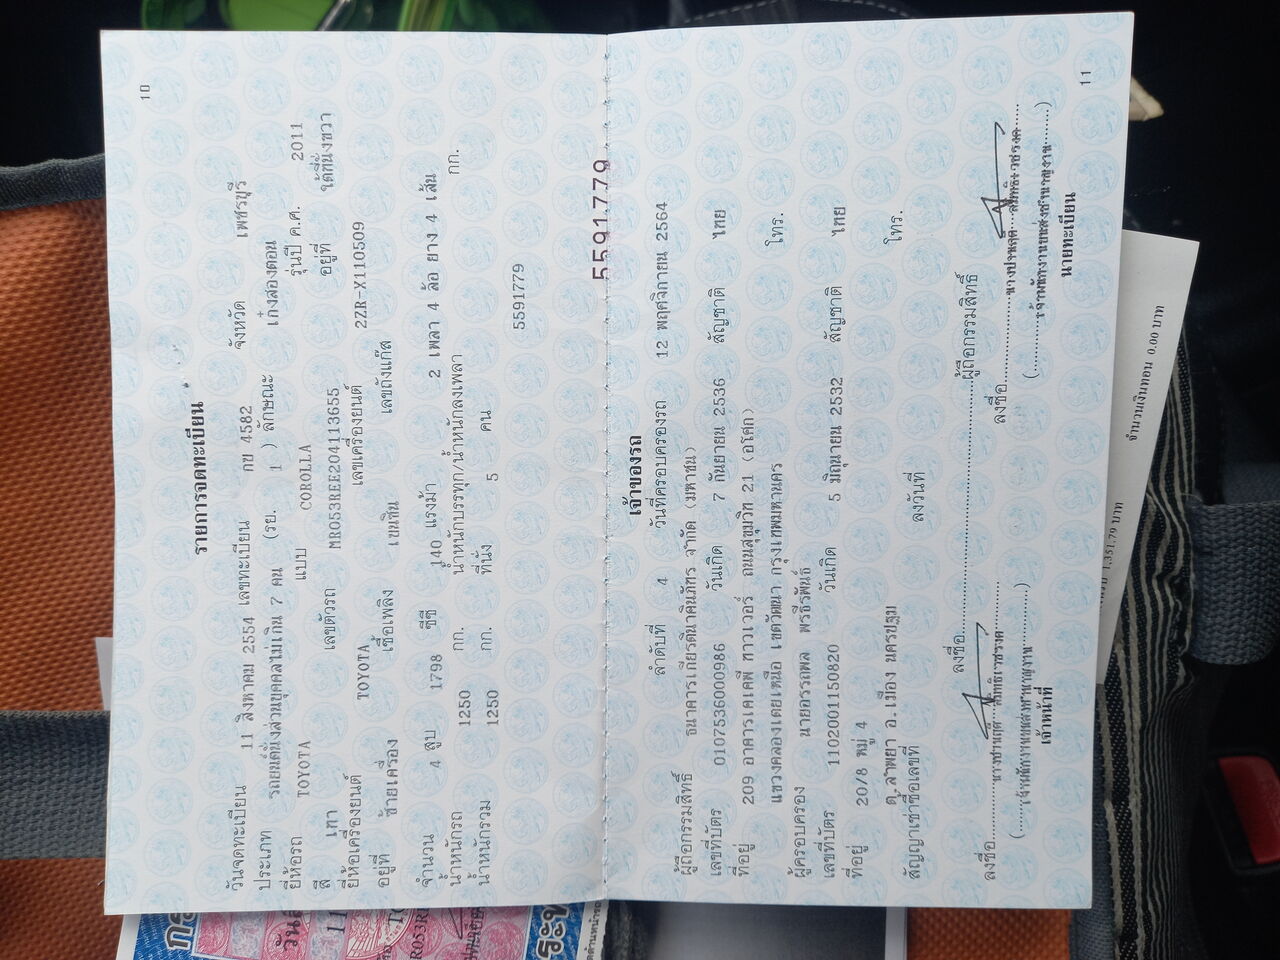 10
รายการจดทะเบียน
วันจดทะเบียน 11 สิงหาคม 2554 เลขทะเบียน กข 4582 จังหวัด เพชรบุรี
ประเภท รถยนต์นั่งส่วนบุคคลไม่เกิน 7 คน (รย. 1 ) ลักษณะ เก๋งสองตอน
ยี่ห้อรถ TOYOTA แบบ COROLLA รุ่นปี ค.ศ. 2011
สี เทา เลขตัวรถ MR053REE204113655 อยู่ที่ ใต้ที่นั่งขวา
ยี่ห้อเครื่องยนต์ TOYOTA เลขเครื่องยนต์ 2ZR-X110509
อยู่ที่ ซ้ายเครื่อง เชื้อเพลิง เบนซิน เลขถังแก๊ส
จำนวน 4 สูบ 1798 ซีซี 140 แรงม้า 2 เพลา 4 ล้อ ยาง 4 เส้น
น้ำหนักรถ 1250 กก. น้ำหนักบรรทุก/น้ำหนักลงเพลา กก.
น้ำหนักรวม 1250 กก. ที่นั่ง 5 คน
5591779
5591779
เจ้าของรถ
ลำดับที่ 4 วันที่ครอบครองรถ 12 พฤศจิกายน 2564
ผู้ถือกรรมสิทธิ์ ธนาคารเกียรตินาคินภัทร จำกัด (มหาชน)
เลขที่บัตร 0107536000986 วันเกิด 7 กันยายน 2536 สัญชาติ ไทย
ที่อยู่ 209 อาคารเคเคพี ทาวเวอร์ ถนนสุขุมวิท 21 (อโศก)
แขวงคลองเตยเหนือ เขตวัฒนา กรุงเทพมหานคร โทร.
ผู้ครอบครอง นายอรรถพล พรธีรพันธ์
เลขที่บัตร 1102001150820 วันเกิด 5 มิถุนายน 2532 สัญชาติ ไทย
ที่อยู่ 20/8 หมู่ 4
ต.ลำพยา อ.เมือง นครปฐม โทร.
สัญญาเช่าซื้อเลขที่ ลงวันที่
ลงชื่อ ผู้ถือกรรมสิทธิ์
ลงชื่อ ลงชื่อ
เจ้าหน้าที่ นายทะเบียน
11
จำนวนเงินทอน 0.00 บาท
1,351.79 บาท